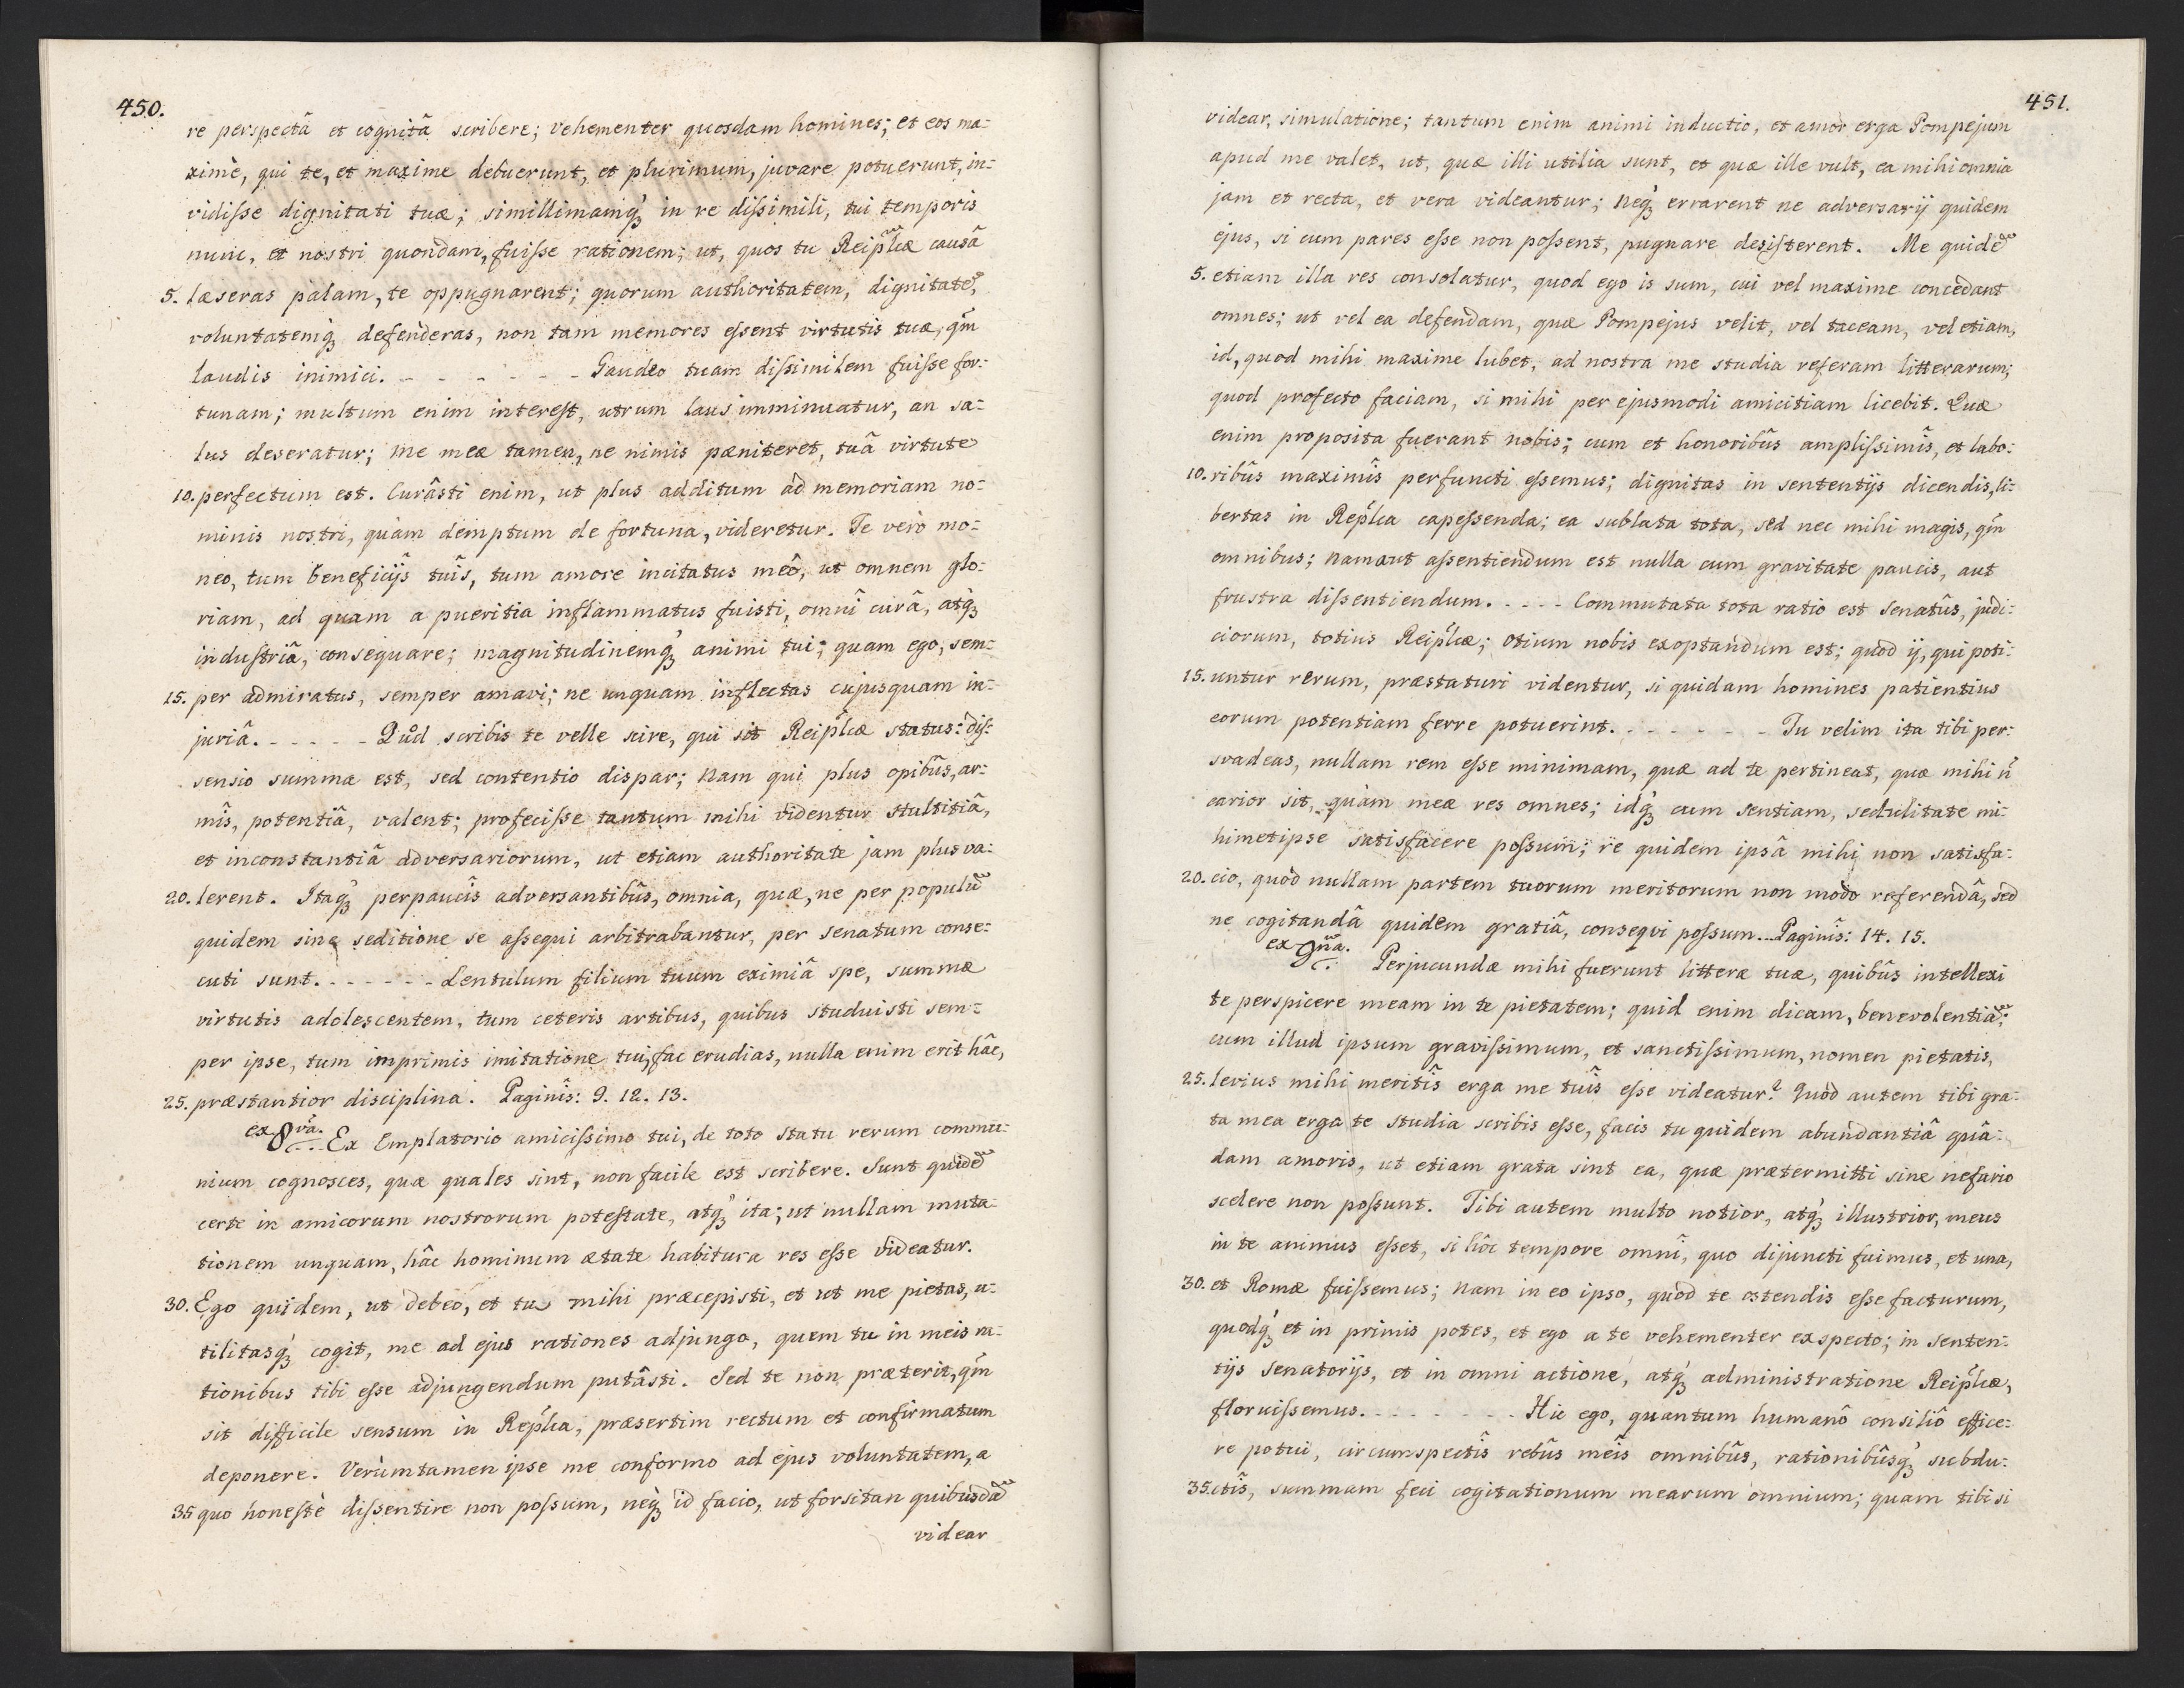 450.
re perspectâ et cognitâ scribere; vehementer quosdam homines; et eos ma=
ximè, qui te, et maxime debuerunt, et plurimum, juvare potuerunt, in=
vidiſse dignitati tuæ; simillimamq́ꝫ in re diſsimili, tui temporis
nunc, et nostri quondam, fuiſse rationem; ut, quos tu Reip̃licæ causâ
5. læseras palam, te oppugnarent; quorum authoritatem, dignitatẽ,
voluntatemq́ꝫ defenderas, non tam memores eſsent virtutis tuæ, qm̃
laudis inimici. - - - - - - Gaudeo tuam diſsimilem fuiſse for=
tunam; multum enim intereſt, utrum laus imminuatur, an sa=
lus deseratur; me meæ tamen, ne nimis pæniteret, tuâ virtute
10. perfectum est. Curâsti enim, ut plus additum ad memoriam no=
minis nostri, quàm demptum de fortuna, videretur. Te verò mo=
neo, tum beneficijs tuîs, tum amore incitatus meô, ut omnem glo=
riam, ad quam a pueritia inflammatus fuisti, omnî curâ, atq́ꝫ
induſtriâ, consequare; magnitudinemq́ꝫ animi tui; quam ego, sem=
15. per admiratus, semper amavi; ne unquam inflectas cujusquam in=
juriâ. - - - - - Quòd scribis te velle scire, qui sit Reip̃licæ status: diſ=
sensio summa est, sed contentio dispar; Nam qui plus opibûs, ar=
mîs, potentiâ, valent; profeciſse tantum mihi videntur stultitiâ,
et inconstantiâ adversariorum, ut etiam authoritate jam plus va=
20. lerent. Itaq́ꝫ perpaucîs adversantibûs, omnia, quæ, ne per populũ
quidem sine seditione se aſsequi arbitrabantur, per senatum conse=
cuti sunt. - - - - - - Lentulum filium tuum eximiâ spe, summæ
virtutis adolescentem, tum ceteris artibus, quibus studuisti sem=
per ipse, tum imprimis imitatione tui, fac erudias, nulla enim erit hâc,
25. præstantior disciplina. Paginîs: 9. 12. 13.
ex 8vâ. Ex Emplatorio amiciſsimo tui, de toto statu rerum commu=
nium cognosces, quæ quales sint, non facile est scribere. Sunt quidẽ
certe in amicorum nostrorum poteſtate, atq́ꝫ ita; ut nullam muta=
tionem unquam, hâc hominum ætate habitura res eſse videatur.
30. Ego quidem, ut debeo, et tu mihi præcepisti, et ut me pietas, u=
tilitasq́ꝫ cogit, me ad ejus rationes adjungo, quem tu in meis ra=
tionibus tibi eſse adjungendum putâsti. Sed te non præterit, qm̃
sit difficile sensum in Rep̃lica, præsertim rectum et confirmatum
deponere. Verùmtamen ipse me conformo ad ejus voluntatem, a
35 quo honeſtè diſsentire non poſsum, neq́ꝫ id facio, ut forsitan quibusdã
videar
451.
videar, simulatione; tantum enim animi inductio, et amor erga Pompejum
apud me valet, ut, quæ illi utilia sunt, et quæ ille vult, ea mihi omnia
jam et recta, et vera videantur; Neq́ꝫ errarent ne adversarij quidem
ejus, si cum pares eſse non poſsent, pugnare desiſterent. Me quidẽ
5. etiam illa res consolatur, quod ego is sum, cui vel maxime concedant
omnes; ut vel ea defendam, quæ Pompejus velit, vel taceam, vel etiam,
id, quod mihi maxime lubet, ad nostra me studia referam litterarum;
quod profecto faciam, si mihi per ejusmodi amicitiam licebit. Quæ
enim proposita fuerant nobis; cum et honoribûs ampliſsimîs, et labo=
10. ribûs maximîs perfuncti eſsemus; dignitas in sententijs dicendis, li=
bertas in Rep̃lica capeſsenda; ea sublata tota, sed nec mihi magis, qm̃
omnibus; nam aut aſsentiendum est nulla cum gravitate paucis, aut
fruſtra diſsentiendum. - - - - Commutata tota ratio est Senatûs, judi=
ciorum, totius Reip̃licæ; Otium nobis exoptandum est; quod ij, qui poti=
15. untur rerum, præstaturi videntur, si quidam homines patientius
eorum potentiam ferre potuerint. - - - - - - Tu velim ita tibi per=
svadeas, nullam rem eſse minimam, quæ ad te pertineat, quæ mihi ñ
carior sit, quàm meæ res omnes; idq́ꝫ cum sentiam, sedulitate mi=
himetipse satisfacere poſsum; re quidem ipsâ mihi non satisfa=
20. cio, quòd nullam partem tuorum meritorum non modo referendâ, sed
ne cogitandâ quidem gratiâ, conseqvi poſsum... Paginîs: 14. 15.
ex 9nâ. Perjucundæ mihi fuerunt litteræ tuæ, quibûs intellexi
te perspicere meam in te pietatem; quid enim dicam, benevolentiã;
cum illud ipsum graviſsimum, et sanctiſsimum, nomen pietatis,
25. levius mihi meritîs erga me tuîs eſse videatur? Quòd autem tibi gra=
ta mea erga te studia scribis eſse, facis tu quidem abundantiâ quâ=
dam amoris, ut etiam grata sint ea, quæ prætermitti sine nefario
scelere non poſsunt. Tibi autem multo notior, atq́ꝫ illustrior, meus
in te animus eſset, si hôc tempore omnî, quo dijuncti fuimus, et una,
30. et Romæ fuiſsemus; Nam in eo ipso, quòd te ostendis eſse facturum,
quodq́ꝫ et in primis potes, et ego a te vehementer exspecto; in senten=
tijs Senatorijs, et in omni actione, atq́ꝫ administratione Reip̃licæ,
floruiſsemus. - - - - - - - Hic ego, quantum humanô consiliô effice=
re potui, circumspectîs rebûs meîs omnibûs, rationibûsq́ꝫ subdu=
35. ctîs, summam feci cogitationum mearum omnium; quam tibi si